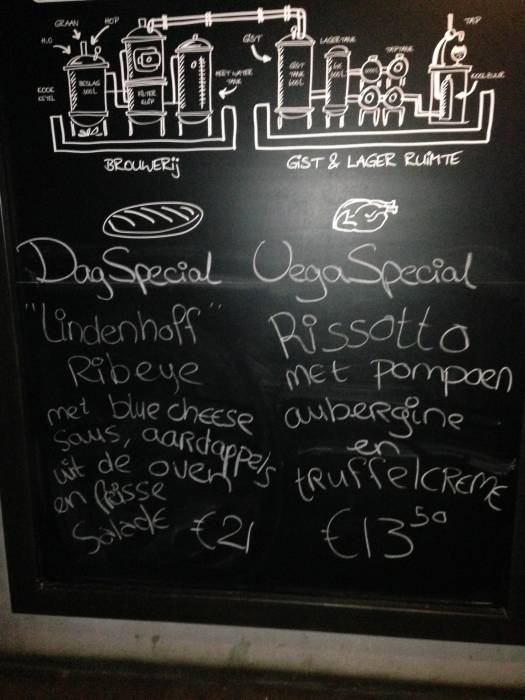 GRAAN
HOP
H2O
KOOK
KETEL
BESLAG
500L
FILTER
KUIP
HEET WATER
TANK
GIST
GIST
TANK
500L
LAGERTANK
500L
TAPTANK
TAP
BROUWERij
GIST & LAGER RUIMTE
DagSpecial
VegaSpecial
"Lindenhoff"
Ribeye
met blue cheese
saus, aardappels
uit de oven
en frisse
Salade €21
Rissotto
met pompoen
aubergine
en
truffelCREME
€13 50